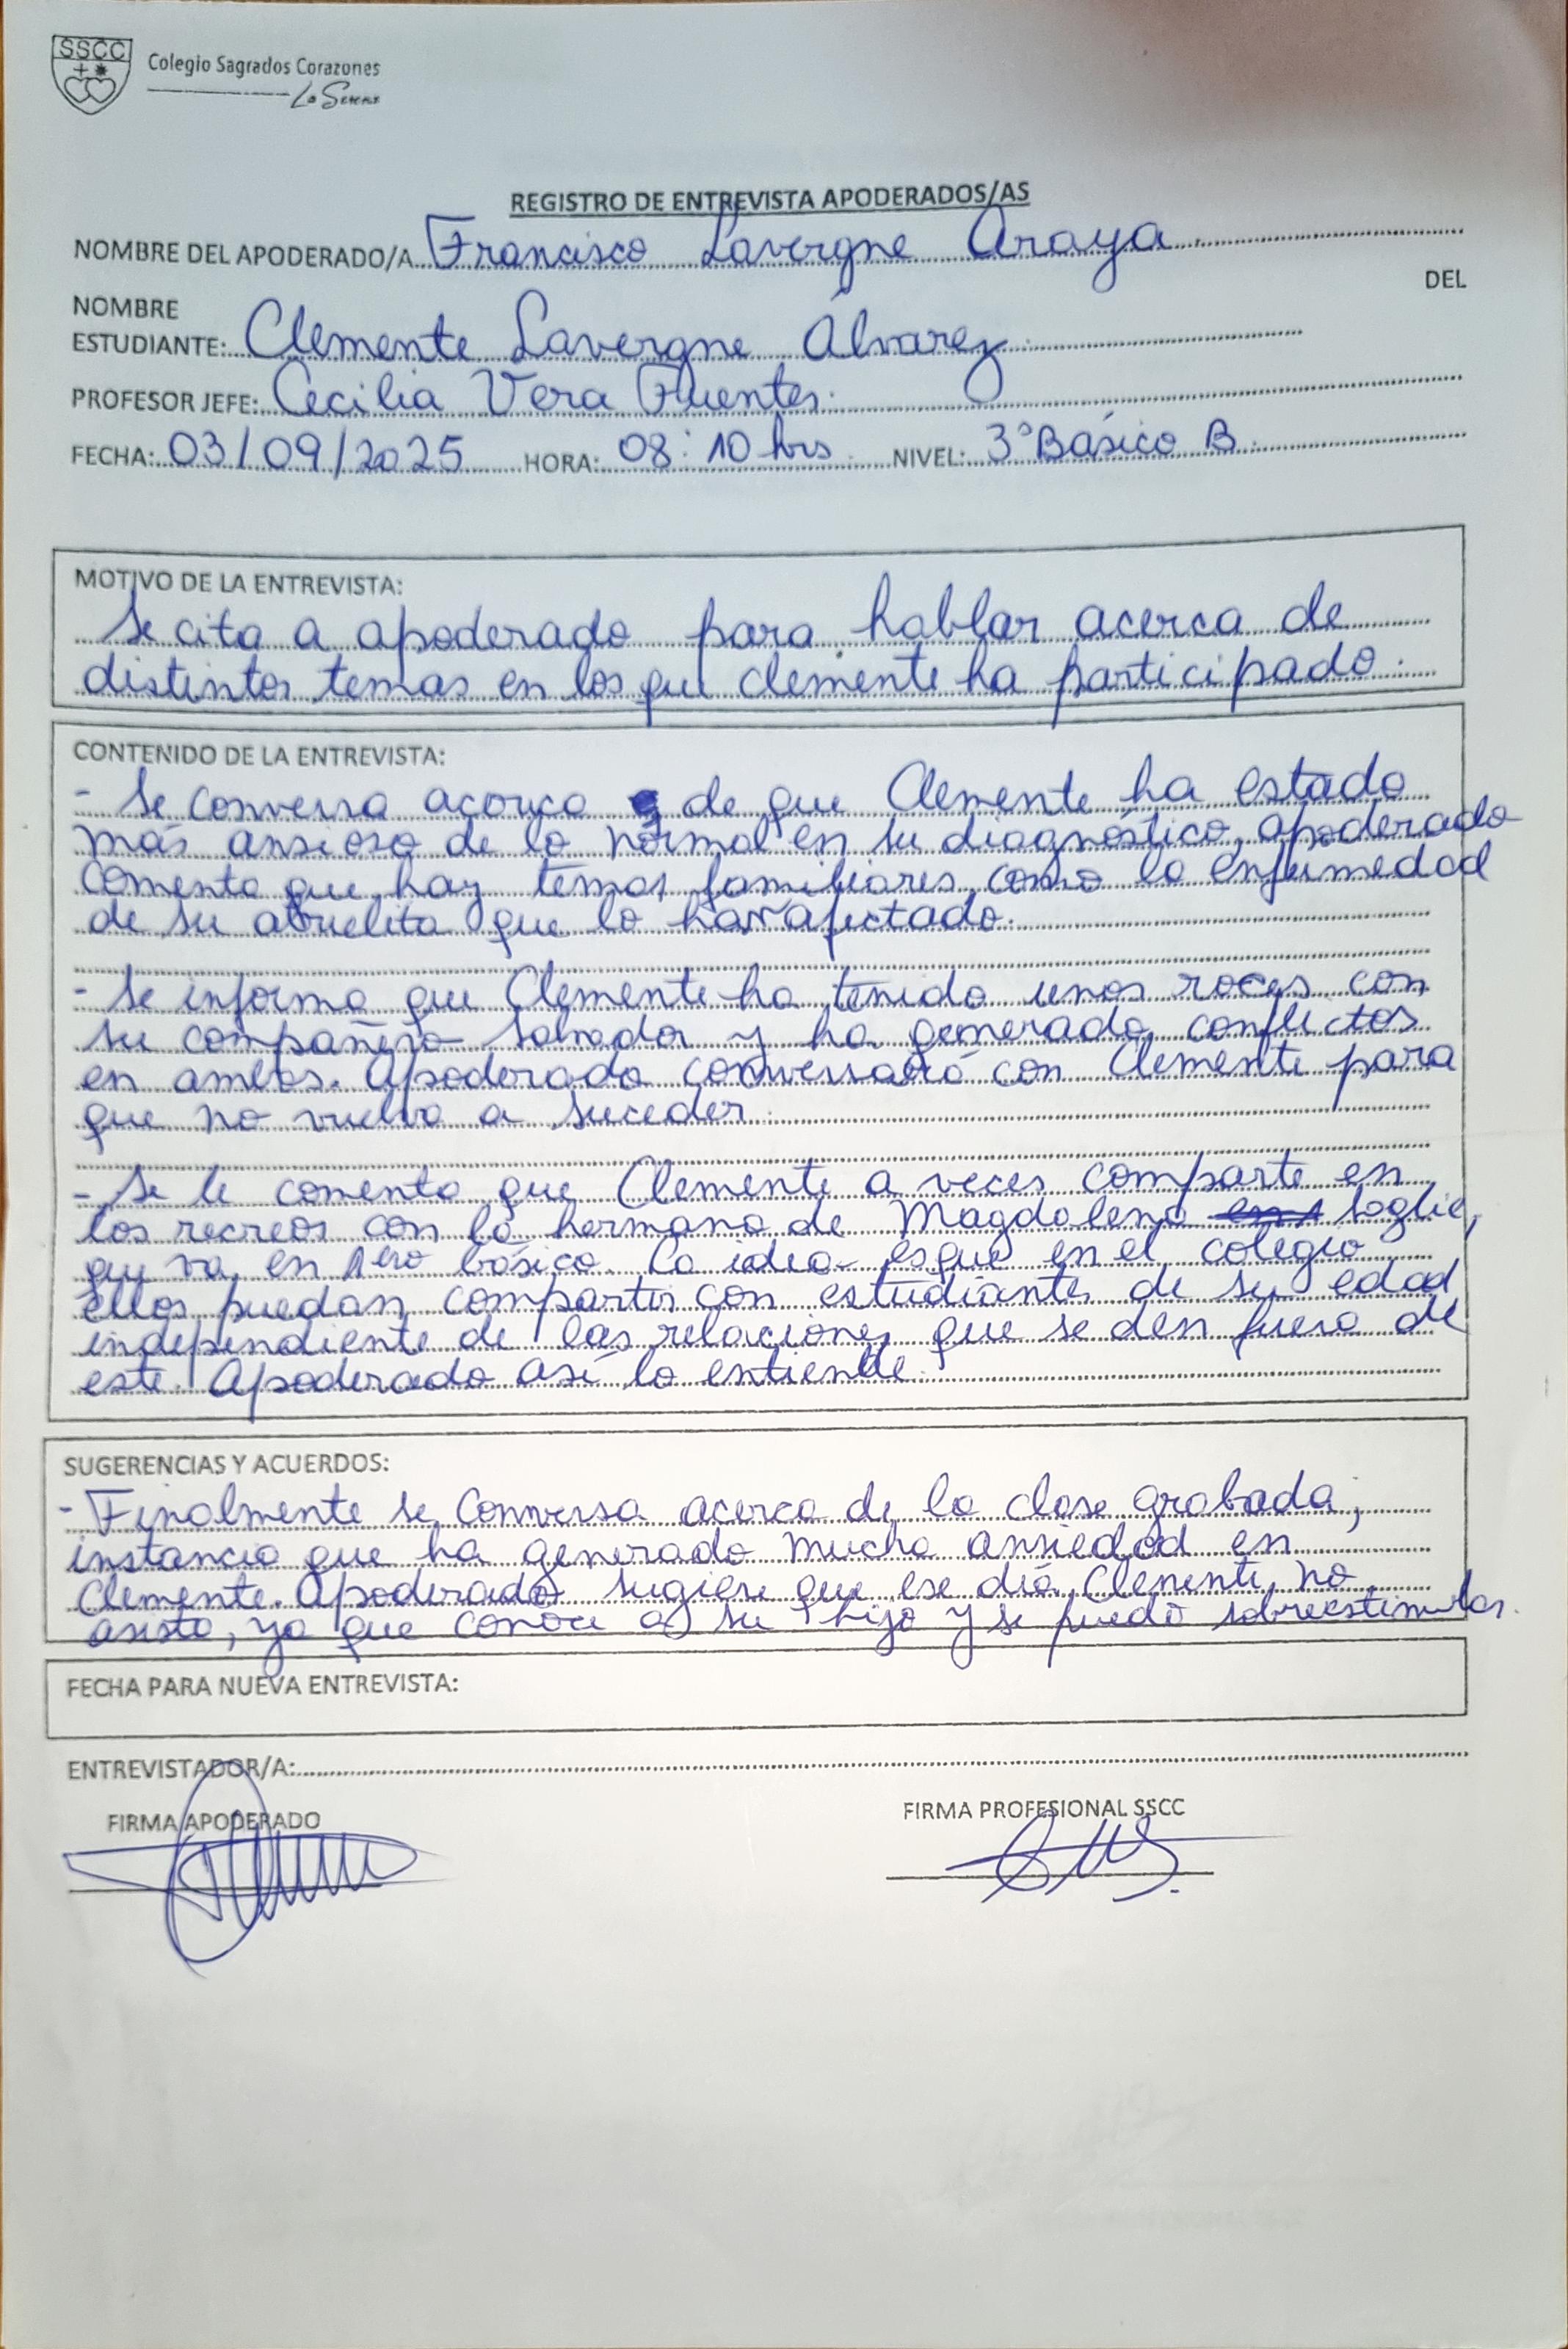 SSCC
Colegio Sagrados Corazones
La Serena
REGISTRO DE ENTREVISTA APODERADOS/AS
NOMBRE DEL APODERADO/A Francisco Lavergne Araya
DEL
NOMBRE
ESTUDIANTE: Clemente Lavergne Álvarez
PROFESOR JEFE: Cecilia Vera Fuentes.
FECHA: 03/09/2025 HORA: 08:10 hrs NIVEL: 3° Básico B.
MOTIVO DE LA ENTREVISTA:
Se cita a apoderado para hablar acerca de
distintos temas en los que Clemente ha participado.
CONTENIDO DE LA ENTREVISTA:
- Se conversa acerca de que Clemente ha estado
más ansioso de lo normal en su diagnóstico, apoderado
comenta que hay temas familiares, como la enfermedad
de su abuelita que lo han afectado.
- Se informa que Clemente ha tenido unos roces con
su compañero Salvador y ha generado conflictos
en ambos. Apoderado conversará con Clemente para
que no vuelva a suceder.
- Se le comenta que Clemente a veces comparte en
los recreos con la hermana de Magdalena
que va en 1ero básico. La idea es que en el colegio
ellos puedan compartir con estudiantes de su edad
independiente de las relaciones que se den fuera de
este. Apoderado así lo entiende.
SUGERENCIAS Y ACUERDOS:
- Finalmente se conversa acerca de la clase grabada,
instancia que ha generado mucha ansiedad en
Clemente. Apoderado sugiere que ese día Clemente no
asista, ya que conoce a su hijo y se puede sobreestimular.
FECHA PARA NUEVA ENTREVISTA:
ENTREVISTADOR/A:
FIRMA APODERADO
FIRMA PROFESIONAL SSCC